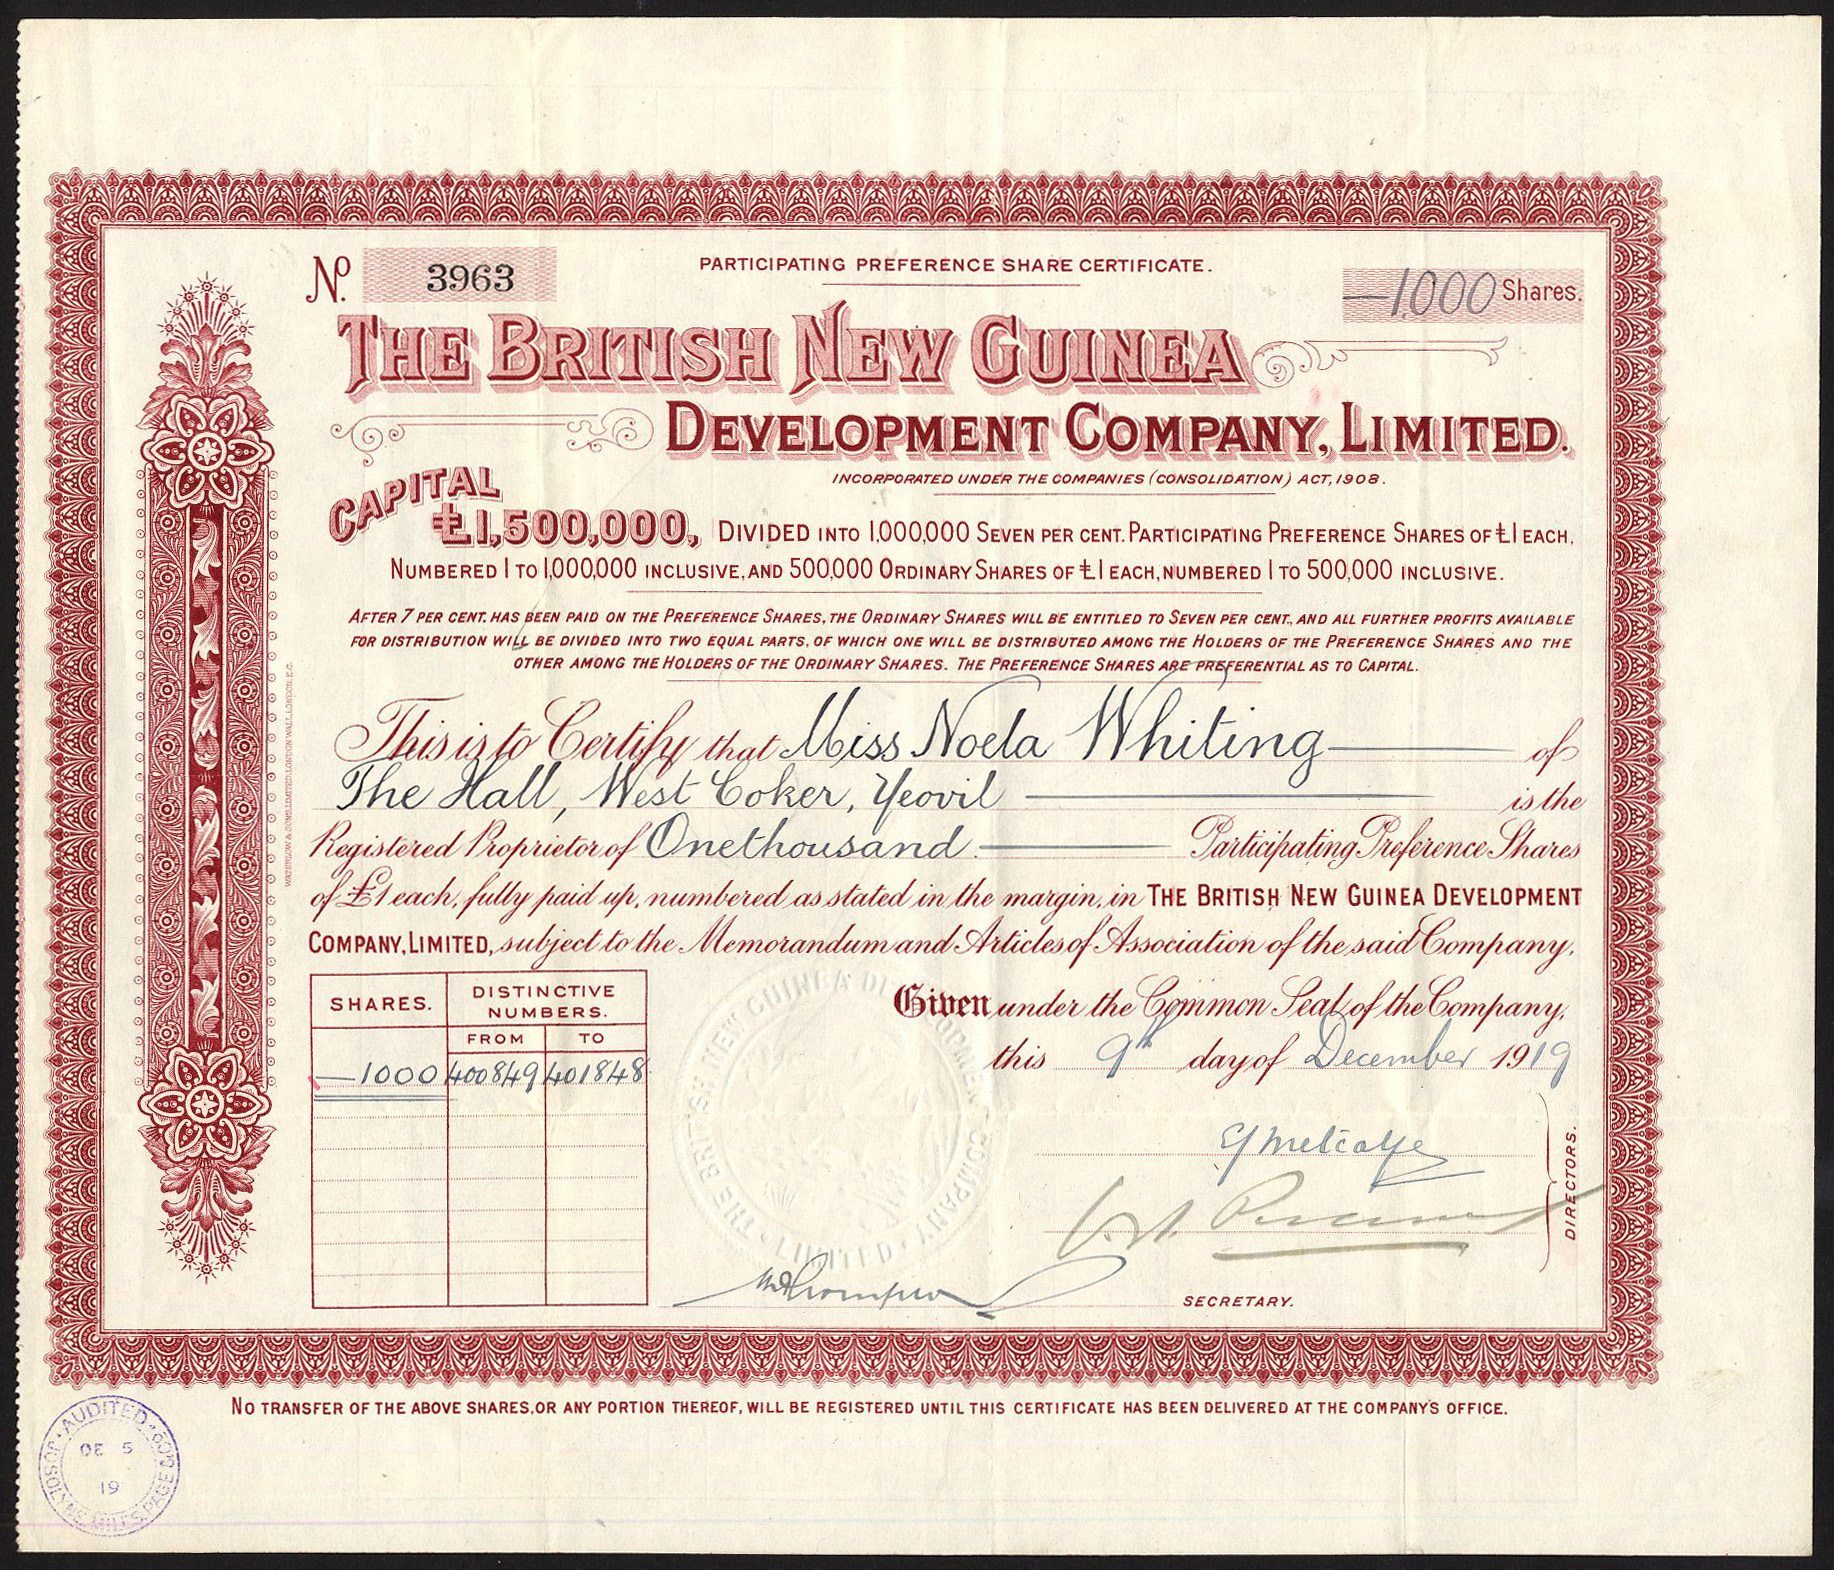 No. 3963
PARTICIPATING PREFERENCE SHARE CERTIFICATE.
—1,000 Shares.
THE BRITISH NEW GUINEA
DEVELOPMENT COMPANY, LIMITED.
INCORPORATED UNDER THE COMPANIES (CONSOLIDATION) ACT, 1908.
CAPITAL
£1,500,000, DIVIDED INTO 1,000,000 SEVEN PER CENT. PARTICIPATING PREFERENCE SHARES OF £1 EACH,
NUMBERED 1 TO 1,000,000 INCLUSIVE, AND 500,000 ORDINARY SHARES OF £1 EACH, NUMBERED 1 TO 500,000 INCLUSIVE.
AFTER 7 PER CENT. HAS BEEN PAID ON THE PREFERENCE SHARES, THE ORDINARY SHARES WILL BE ENTITLED TO SEVEN PER CENT., AND ALL FURTHER PROFITS AVAILABLE
FOR DISTRIBUTION WILL BE DIVIDED INTO TWO EQUAL PARTS, OF WHICH ONE WILL BE DISTRIBUTED AMONG THE HOLDERS OF THE PREFERENCE SHARES AND THE
OTHER AMONG THE HOLDERS OF THE ORDINARY SHARES. THE PREFERENCE SHARES ARE PREFERENTIAL AS TO CAPITAL.
WATERLOW & SONS, LIMITED, LONDON WALL, LONDON, E.C.
This is to Certify that Miss Noela Whiting — of
The Hall, West Coker, Yeovil — is the
Registered Proprietor of One thousand — Participating Preference Shares
of £1 each, fully paid up, numbered as stated in the margin, in THE BRITISH NEW GUINEA DEVELOPMENT
COMPANY, LIMITED, subject to the Memorandum and Articles of Association of the said Company.
Given under the Common Seal of the Company,
this 9th day of December 1919
SHARES. DISTINCTIVE NUMBERS.
FROM TO
—1000 400849 401848
THE BRITISH NEW GUINEA DEVELOPMENT COMPANY LIMITED
Metcalfe
DIRECTORS.
SECRETARY.
NO TRANSFER OF THE ABOVE SHARES, OR ANY PORTION THEREOF, WILL BE REGISTERED UNTIL THIS CERTIFICATE HAS BEEN DELIVERED AT THE COMPANY'S OFFICE.
AUDITED
DE 5
19
JOSOLYNE MILES PAGE & CO